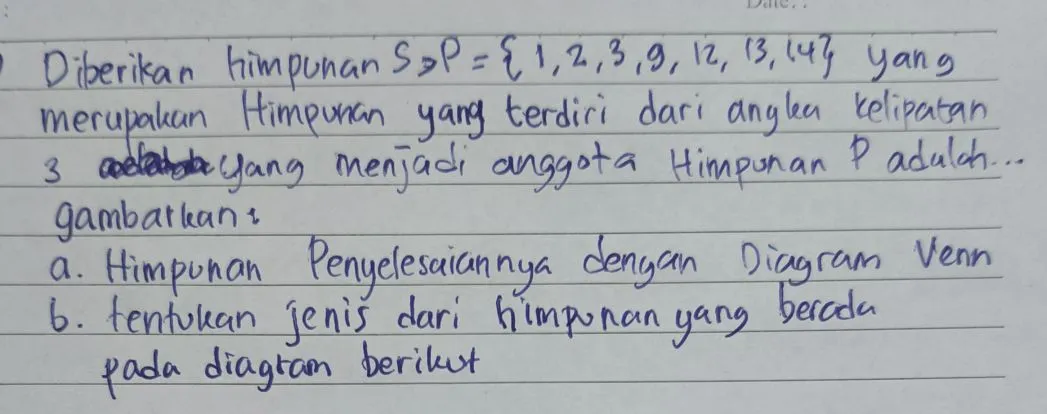 Date. :
Diberikan himpunan S⊃P = {1, 2, 3, 9, 12, 13, 14} yang
merupakan Himpunan yang terdiri dari angka kelipatan
3 yang menjadi anggota Himpunan P adalah...
gambarkan :
a. Himpunan Penyelesaiannya dengan Diagram Venn
b. tentukan jenis dari himpunan yang berada
pada diagram berikut